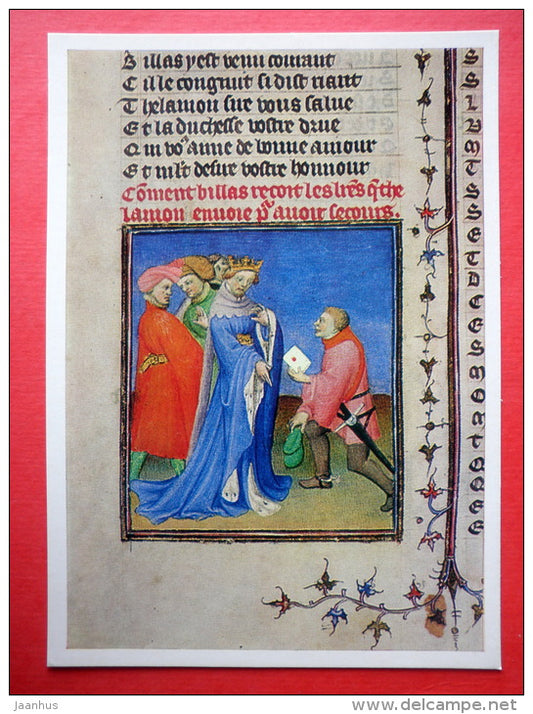 Billas y est venu courant
Cil le congnut si dist riant
Thelamon sire vous salue
Et la duchesse vostre drue
Qui vo9 anme de bonne amour
Et mlt desire vostre honnour
Coment billas recoit les lres q the
lamon envoie pr avoir secours.
S
S
L
D
M
T
S
S
E
T
D
C
E
S
M
O
N
T
jaanhus
www.delcampe.net